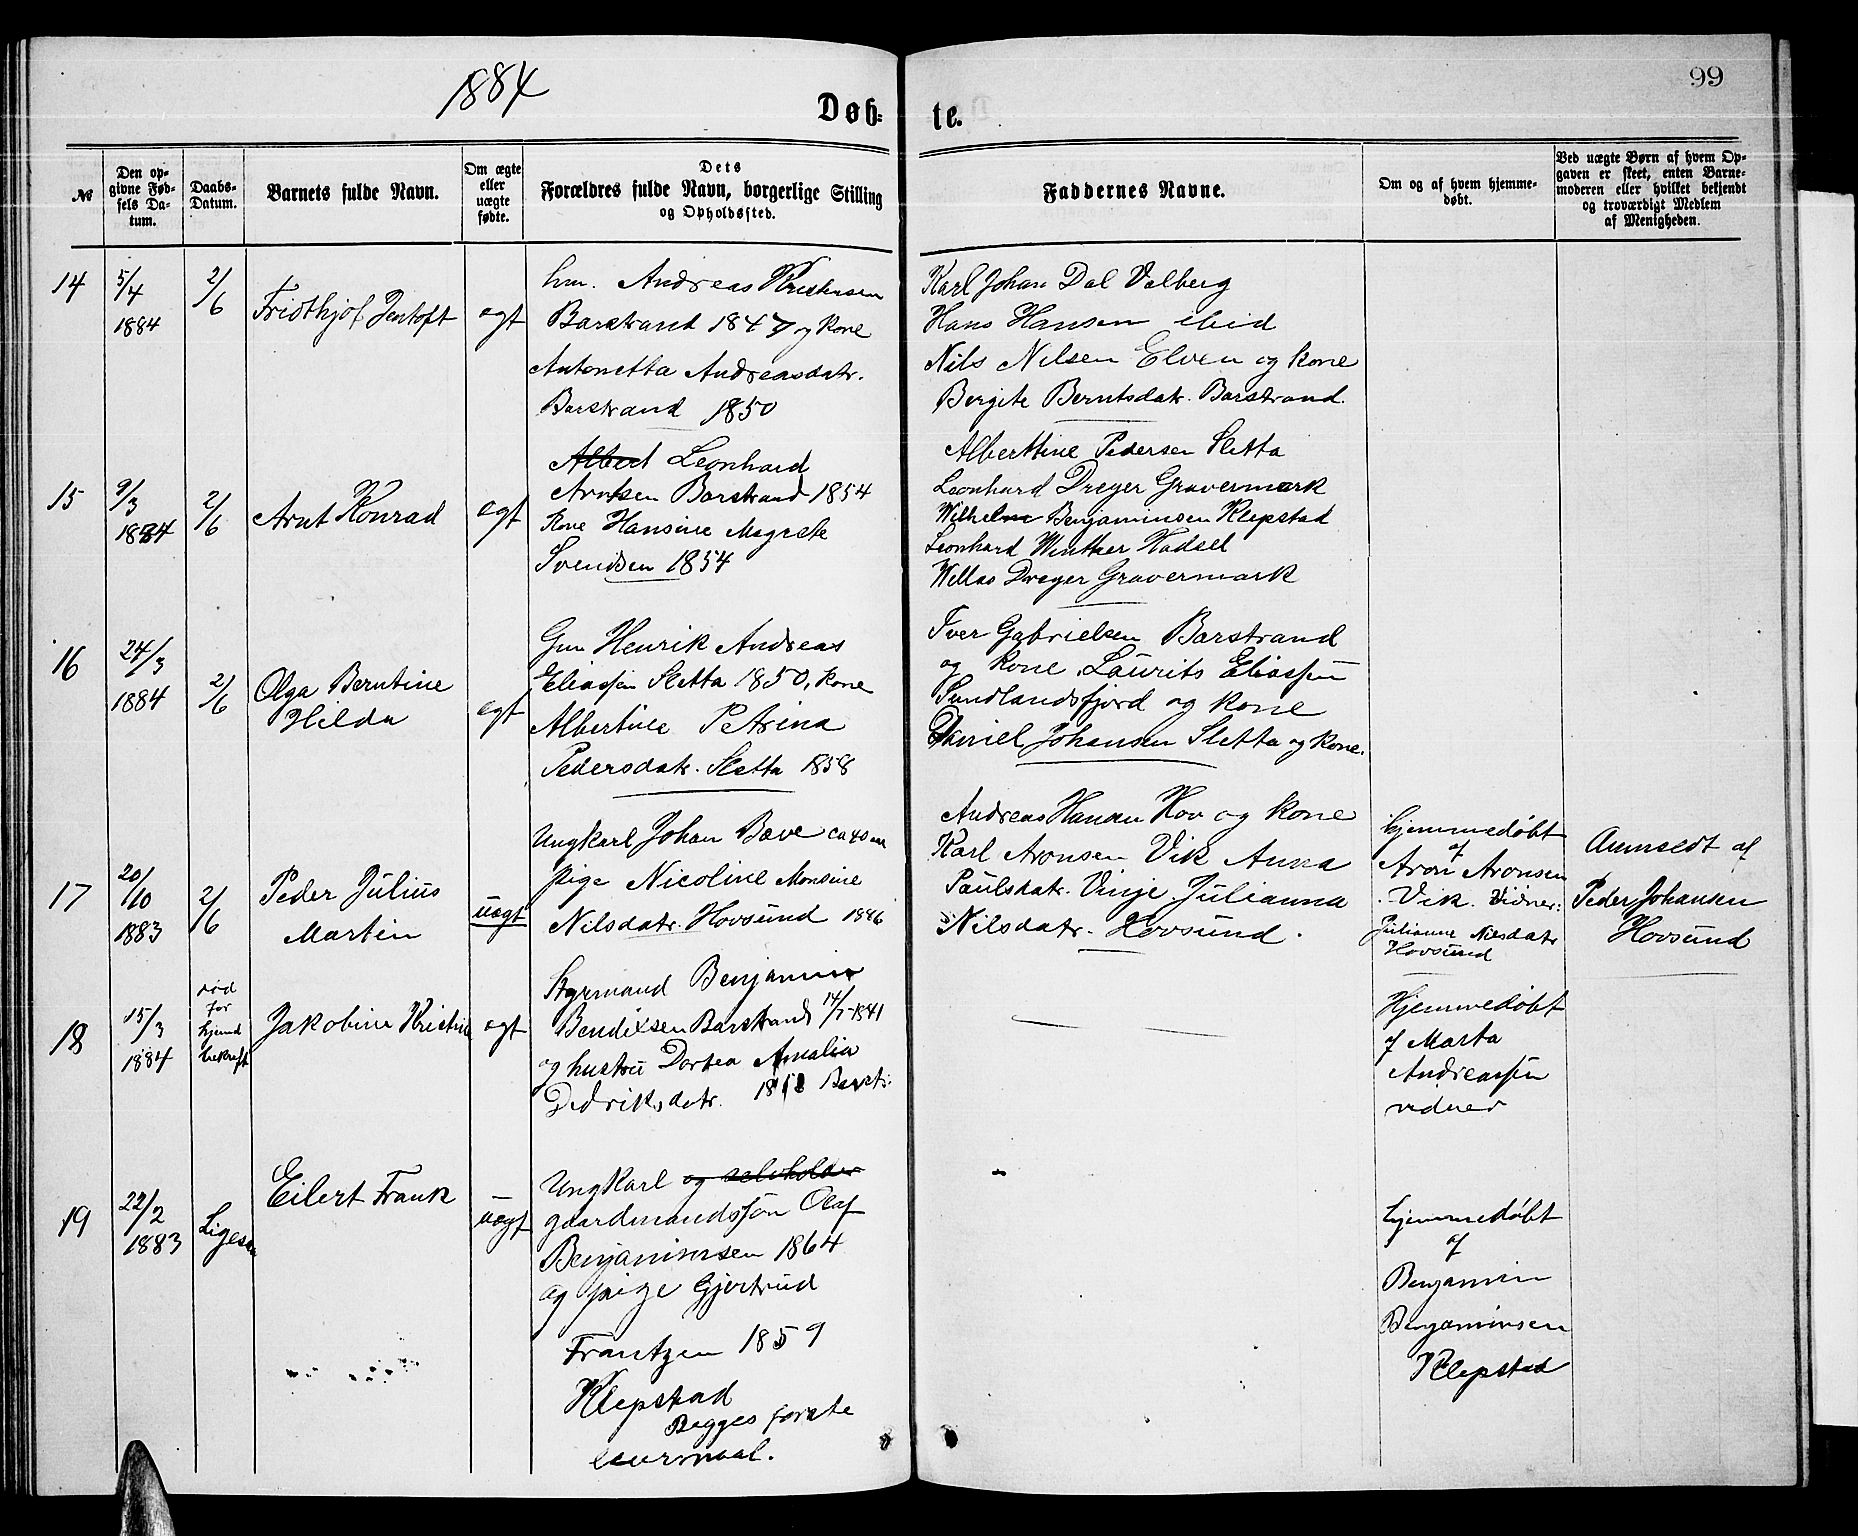 1884
99
Døb-
te.
№
Den op-
givne Fød-
sels Da-
tum.
Daabs-
Datum.
Barnets fulde Navn.
Om ægte
eller
uægte
fødte.
Dets
Forældres fulde Navn, borgerlige Stilling
og Opholdssted.
Faddernes Navne.
Om og af hvem hjemme-
døbt.
Ved uægte Børn af hvem Op-
gaven er skeet, enten Barne-
moderen eller hvilket bekjendt
og troværdigt Medlem
af Menigheden.
14
5/4
1884
2/6
Fridthjof Jentoft
egt
hm. Andreas Kristensen
Barstrand 1847 og kone
Antonetta Andreasdatr.
Barstrand 1850
Karl Johan Dal Valberg
Hans Hansen ibid
Nils Nilsen Elven og kone
Bergite Berntsdatr. Barstrand.
15
9/3
1884
2/6
Arnt Konrad
egt
Albert Leonhard
Arntsen Barstrand 1854
kone Hansine Magrete
Svendsen 1854
Alberttine Pedersen Sletta
Leonhard Dreyer Gravermark
Wilhelm Benjaminsen Klepstad
Leonhard Winther Hadsel
Dreyer Gravermark
16
24/3
1884
2/6
Olga Berntine
Hilda
egt
Gm Henrik Andreas
Eliassen Sletta 1850, kone
Albertine Petrina
Pedersdatr. Sletta 1858
Iver Gabrielsen Barstrand
og kone, Laurits Eliassen
Sundlandsfjord og kone
Daniel Johansen Sletta og kone.
17
20/10
1883
2/6
Peder Julius
Martin
uegt
Ungkarl Johan Bæve ca 40 aar
pige Nicoline Monsine
Nilsdatr. Hovsund 1886
Andreas Hansen Hov og kone
Karl Aronsen Vik Anna
Paulsdatr. Vinje Julianna
Nilsdatr. Hovsund.
hjemmedøbt
af
Aron Aronsen
Vik. Vidner:
Julianne Nilsdatr
Hovsund
Anmeldt af
Peder Johansen
Hovsund
18
15/3
1884
død
før
hjemd
bekræft
Jakobine Kristine
egt
Styrmand Benjamin
Bendixsen Barstrand 14/7 1841
og hustru Dortea Amalia
Didriksdatr. Barstr:
Hjemmedøbt
af Marta
Andreassen
vidner
19
22/2
1883
Ligesaa
Eilert Frank
uegt
Ungkarl og selvholder
gaardmandssøn Olaf
Benjaminsen 1864
og pige Gjertrud
Frantzen 1859
Klepstad
Begges første
leiermaal.
hjemmedøbt
af
Benjamin
Benjaminsen
Klepstad